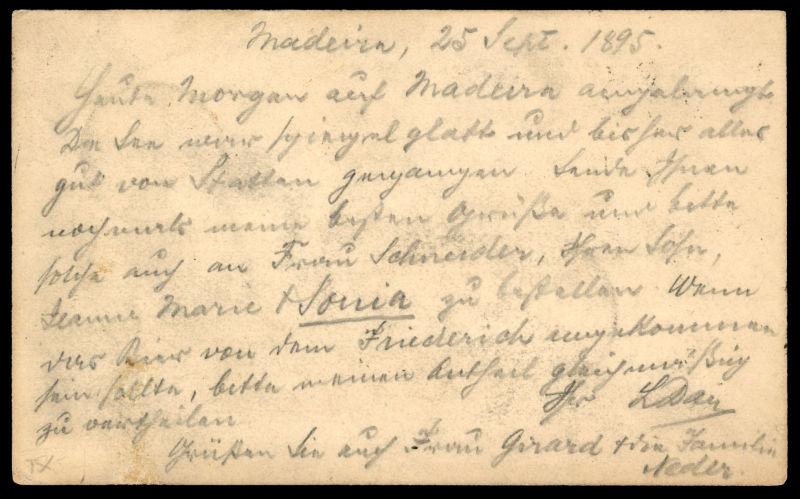 Madeira, 25 Sept. 1895.
Heute Morgen auf Madeira angelangt
Die See war spiegelglatt und bisher alles
gut von Statten gegangen Sende Ihnen
nochmals meine besten Grüße und bitte
solche auch an Frau Schneider, Ihren Sohn,
Jeanne Marie & Sonia zu bestellen Wenn
das Bier von dem Friederich angekommen
sein sollte, bitte meinen Antheil gleichmäßig
zu vertheilen Ihr
Grüßen Sie auch Frau Girard & die Familie
Neder.